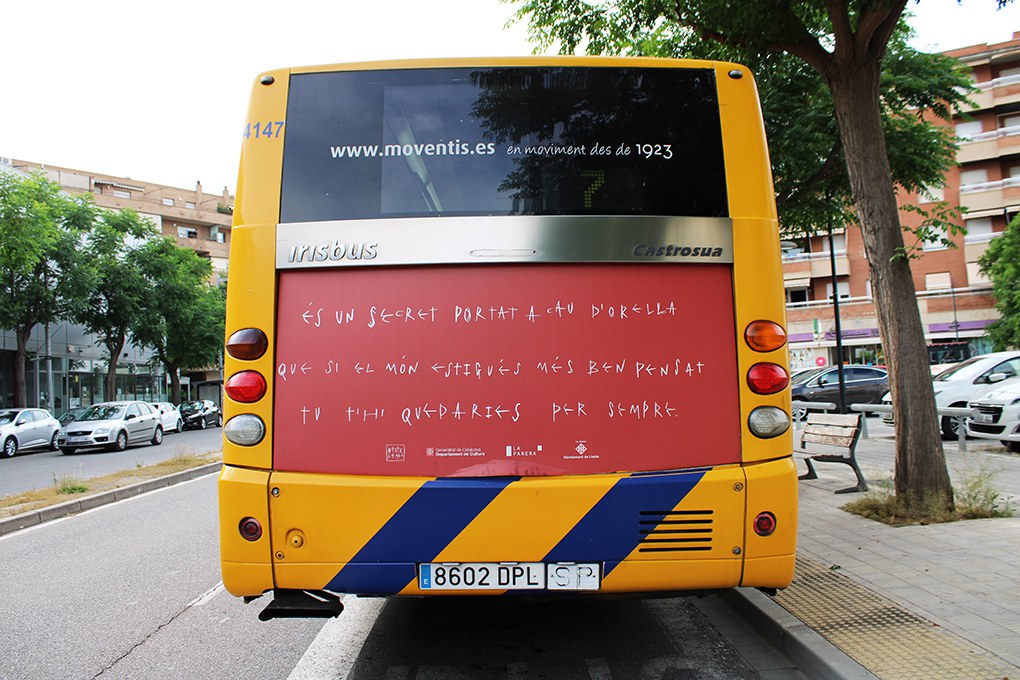 4147
www.moventis.es en moviment des de 1923
7
irisbus Castrosua
ÉS UN SECRET PORTAT A CAU D'ORELLA
QUE SI EL MÓN ESTIGUÉS MÉS BEN PENSAT
TU T'HI QUEDARIES PER SEMPRE.
Generalitat de Catalunya
Departament de Cultura
LA PANERA
Ajuntament de Lleida
E 8602 DPL SP